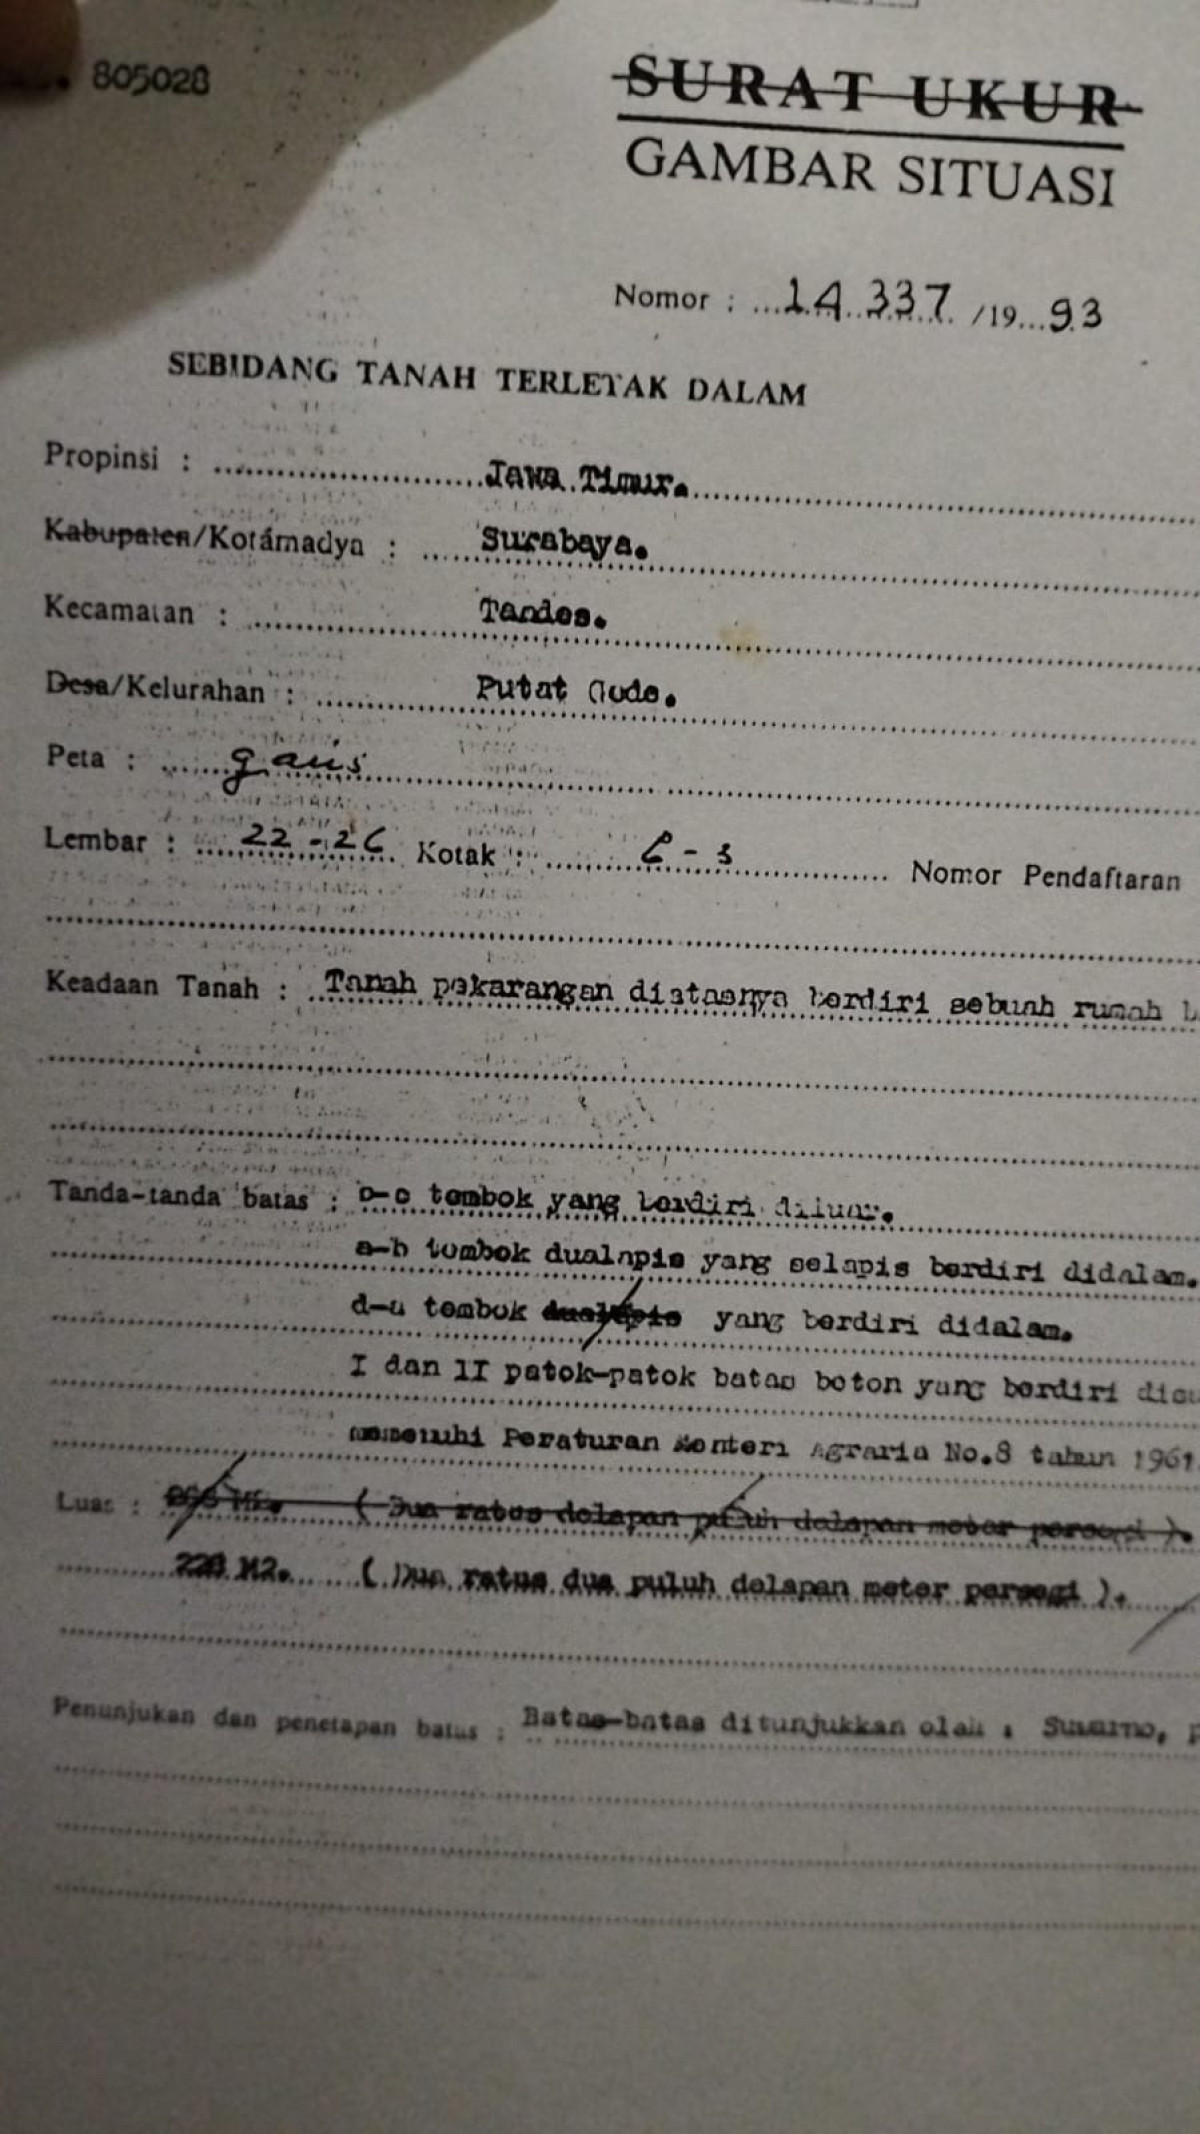 805028
SURAT UKUR
GAMBAR SITUASI
Nomor : 14.337 /19 93
SEBIDANG TANAH TERLETAK DALAM
Propinsi : Jawa Timur.
Kabupaten/Kotamadya : Surabaya.
Kecamatan : Tandes.
Desa/Kelurahan : Putat Gede.
Peta :
Lembar : 22-26 Kotak : Nomor Pendaftaran
Keadaan Tanah : Tanah pekarangan diatasnya berdiri sebuah rumah
Tanda-tanda batas : tembok yang berdiri diluar.
a-b tembok dualapis yang selapis berdiri didalam.
d-a tembok dualapis yang berdiri didalam.
I dan II patok-patok batas beton yang berdiri
memenuhi Peraturan Menteri Agraria No.8 tahun 1961
Luas : ( Dua ratus delapan puluh delapan meter persegi ).
228 M2. ( Dua ratus dua puluh delapan meter persegi ).
Penunjukan dan penetapan batas : Batas-batas ditunjukkan oleh :